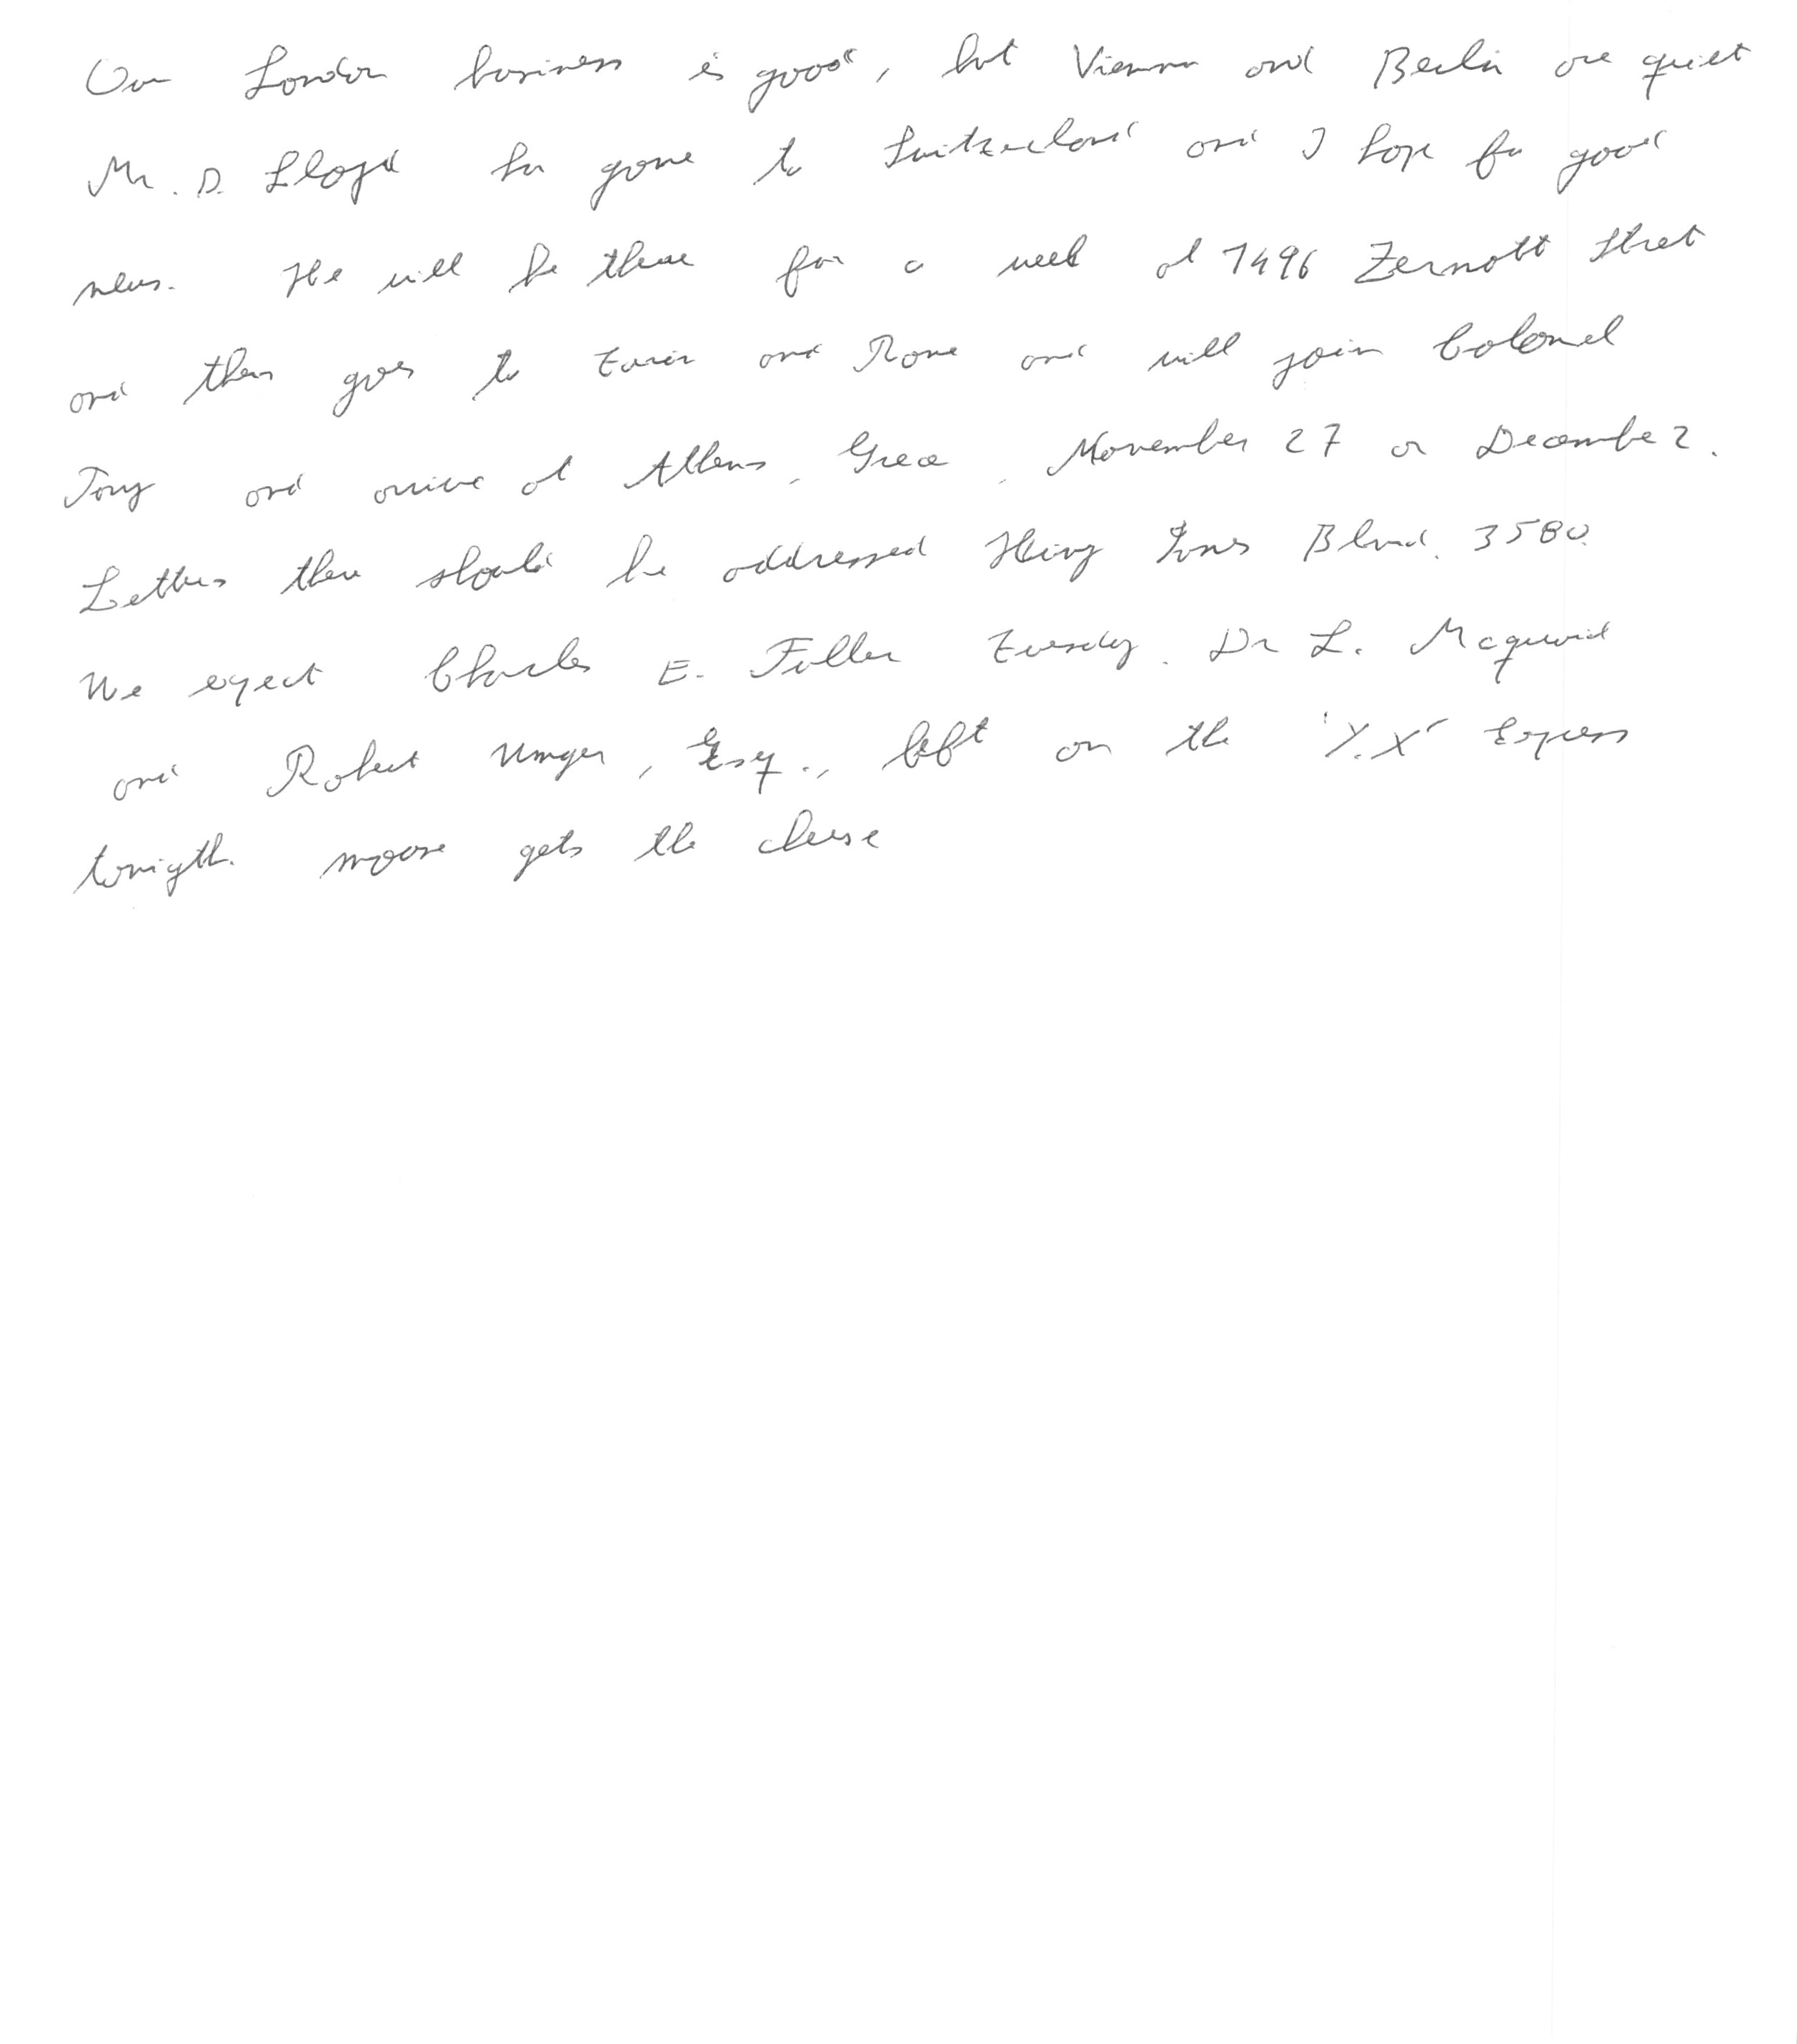 Our London business is good, but Vienna and Berlin are quiet
Mr. D. Lloyd has gone to Switzerland and I hope for good
news. He will be there for a week at 7496 Zermott Street
and then goes to Turin and Rome and will join Colonel
Tony and arrive at Athens, Greece, November 27 or Decembe 2.
Letters there should be addressed King James Blvd. 3580.
We expect Charles E. Fuller Tuesday. Dr L. Mcquaid
and Robert Unger, Esq., left on the 'Y.X' Express
tonigth. moose gets the cheese